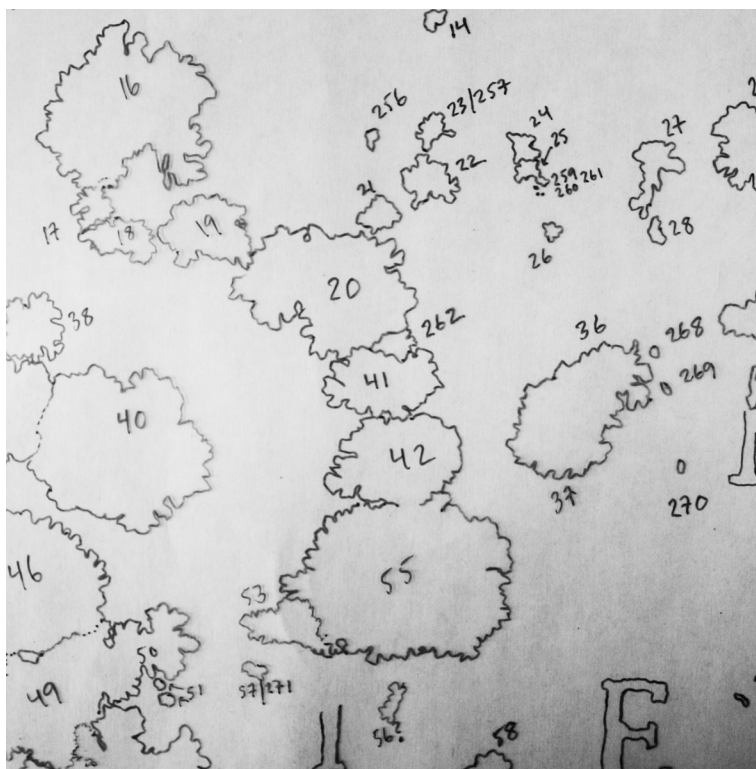 14
16
256
23/257
24
25
27
22
259 261
260
21
17
18
19
28
26
20
38
262
36
268
41
269
40
42
37
270
46
55
53
50
51
49
57/271
56?
58
E